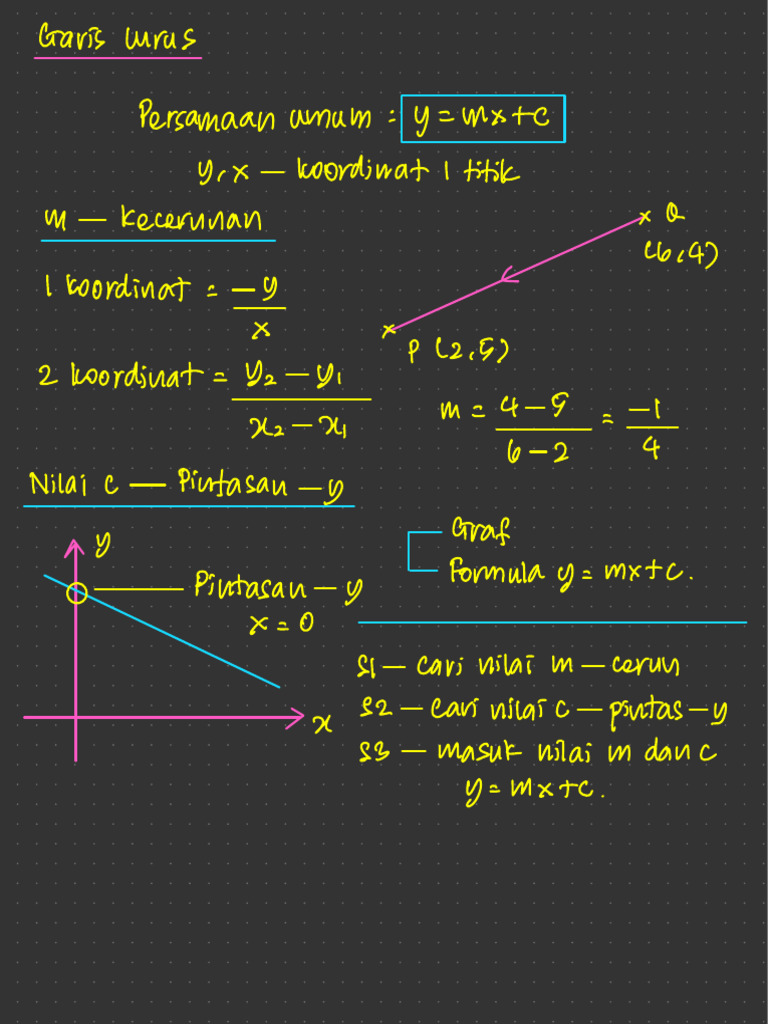 Garis lurus
Persamaan umum : y = mx + c
y, x — koordinat 1 titik
m — kecerunan
1 koordinat = -y / x
2 koordinat = y₂ - y₁ / x₂ - x₁
Q
(6,4)
P (2,5)
m = 4 - 5 / 6 - 2 = -1 / 4
Nilai c — Pintasan - y
Graf
Formula y = mx + c.
y
Pintasan - y
x = 0
x
S1 — cari nilai m — cerun
S2 — cari nilai c — pintas - y
S3 — masuk nilai m dan c
y = mx + c.